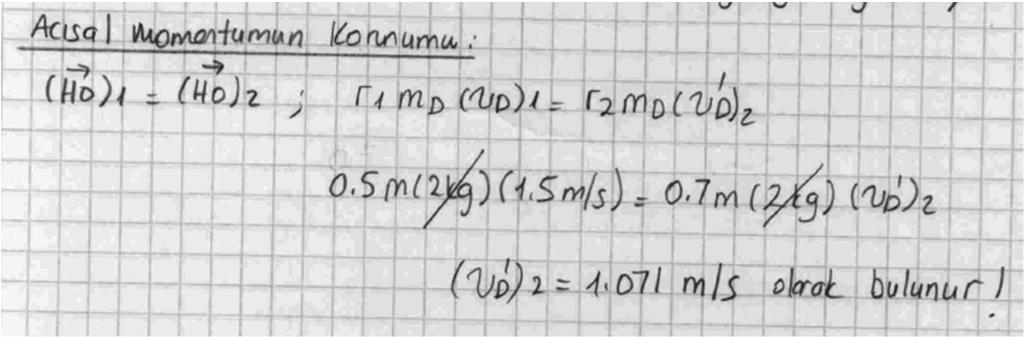 Acısal momentumun Korunumu:
(H⃗O)1 = (H⃗O)2 ; r1 mD (vD)1 = r2 mD (v'D)2
0.5 m (2 kg) (1.5 m/s) = 0.7 m (2 kg) (v'D)2
(v'D)2 = 1.071 m/s olarak bulunur!